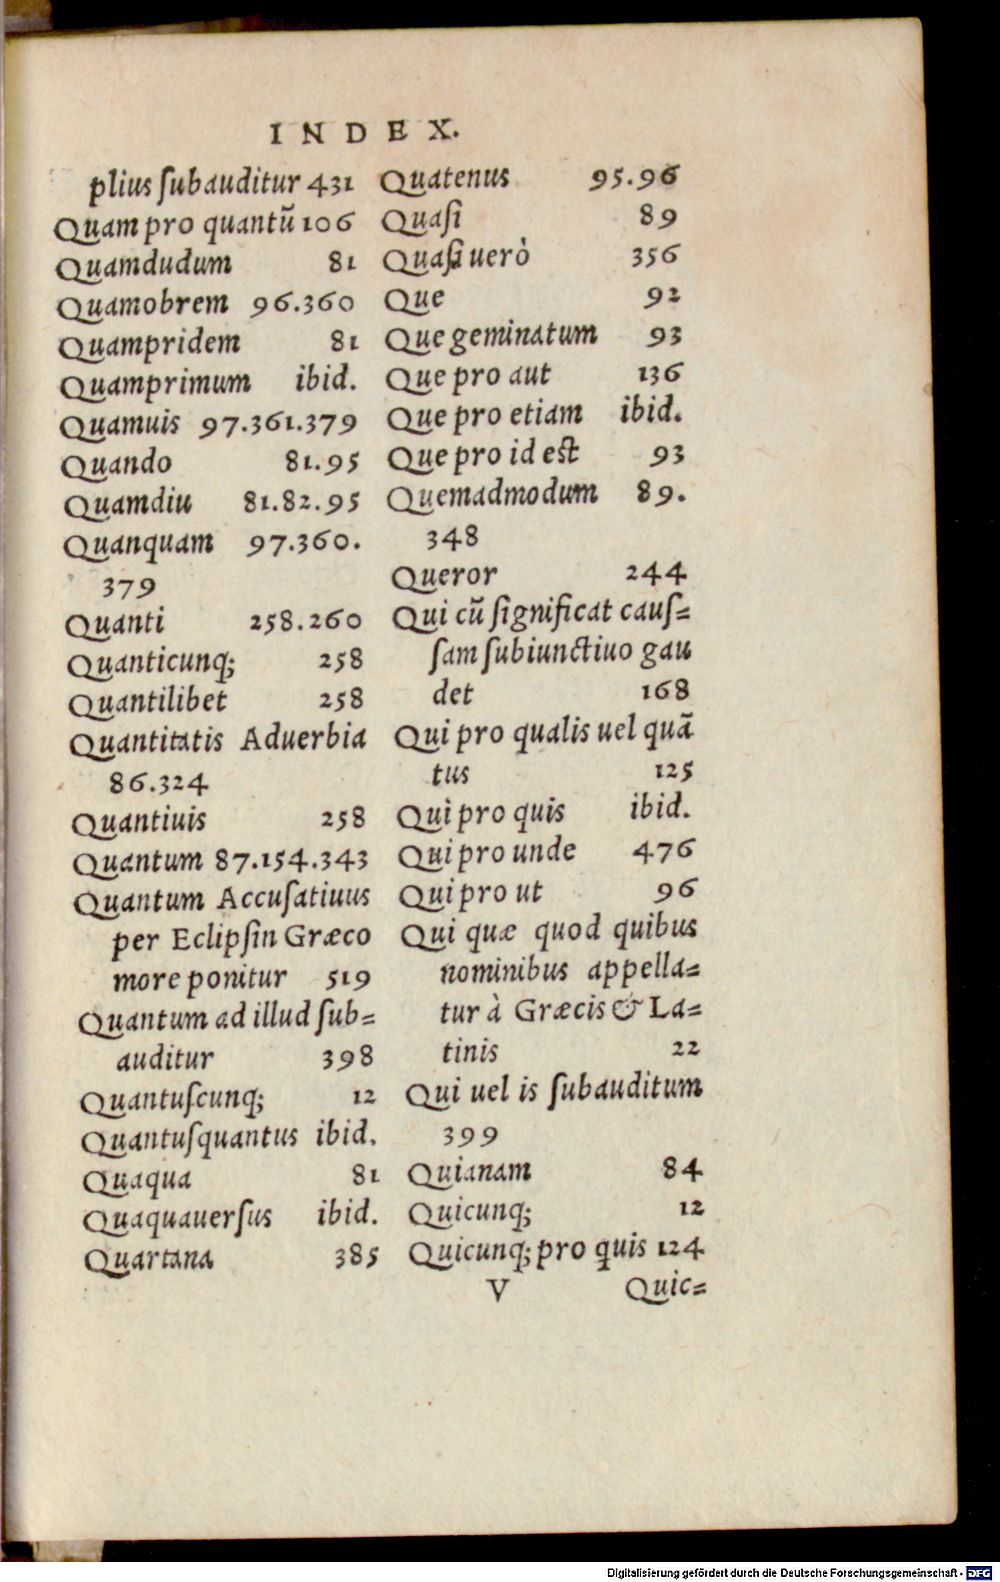 INDEX.
plius ſubauditur 431
Quam pro quantũ 106
Quamdudum 81
Quamobrem 96.360
Quampridem 81
Quamprimum ibid.
Quamuis 97.361.379
Quando 81.95
Quamdiu 81.82.95
Quanquam 97.360.
379
Quanti 258.260
Quanticunq; 258
Quantilibet 258
Quantitatis Aduerbia
86.324
Quantiuis 258
Quantum 87.154.343
Quantum Accuſatiuus
per Eclipſin Græco
more ponitur 519
Quantum ad illud ſub=
auditur 398
Quantuſcunq; 12
Quantuſquantus ibid.
Quaqua 81
Quaquauerſus ibid.
Quartana 385
Quatenus 95.96
Quaſi 89
Quaſi uerò 356
Que 92
Que geminatum 93
Que pro aut 136
Que pro etiam ibid.
Que pro id est 93
Quemadmodum 89.
348
Queror 244
Qui cũ ſignificat cauſ=
ſam ſubiunctiuo gau
det 168
Qui pro qualis uel quã
tus 125
Qui pro quis ibid.
Qui pro unde 476
Qui pro ut 96
Qui quæ quod quibus
nominibus appella=
tur à Græcis & La=
tinis 22
Qui uel is ſubauditum
399
Quianam 84
Quicunq; 12
Quicunq; pro quis 124
V Quic=
Digitalisierung gefördert durch die Deutsche Forschungsgemeinschaft - DFG